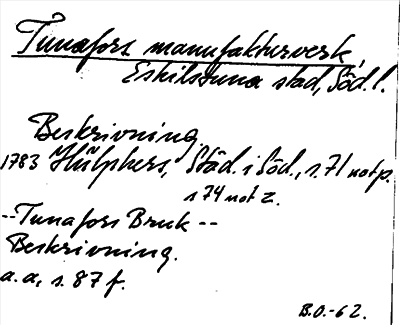 Tunafors manufakturverk,
Eskilstuna stad, Söd. l.
Beskrivning
1783 Hülphers, Städ. i Söd., s. 71 not p.
s 74 not z.
--Tunafors Bruk --
Beskrivning.
a. a, s. 87 f.
B.O.-62.